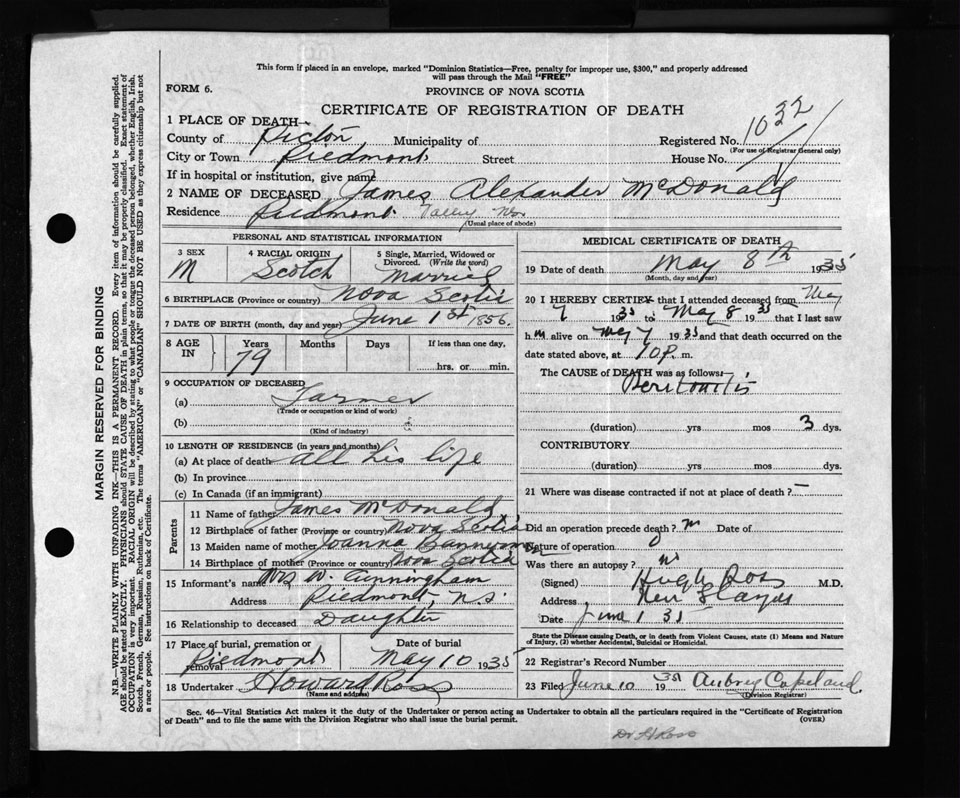 This form if placed in an envelope, marked "Dominion Statistics—Free, penalty for improper use, $300," and properly addressed
will pass through the Mail "FREE"
FORM 6.
PROVINCE OF NOVA SCOTIA
CERTIFICATE OF REGISTRATION OF DEATH
1 PLACE OF DEATH—
County of Pictou Municipality of Registered No. 1032
(For use of Registrar General only)
City or Town Piedmont Street House No.
If in hospital or institution, give name
2 NAME OF DECEASED James Alexander McDonald
Residence Piedmont Valley
(Usual place of abode)
PERSONAL AND STATISTICAL INFORMATION
3 SEX M
4 RACIAL ORIGIN Scotch
5 Single, Married, Widowed or Divorced. (Write the word) Married
6 BIRTHPLACE (Province or country) Nova Scotia
7 DATE OF BIRTH (month, day and year) June 1st 1856.
8 AGE IN Years Months Days If less than one day,
79 hrs. or min.
9 OCCUPATION OF DECEASED
(a) Farmer
(Trade or occupation or kind of work)
(b)
(Kind of industry)
10 LENGTH OF RESIDENCE (in years and months)
(a) At place of death all his life
(b) In province
(c) In Canada (if an immigrant)
Parents
11 Name of father James McDonald
12 Birthplace of father (Province or country) Nova Scotia
13 Maiden name of mother Joanna
14 Birthplace of mother (Province or country) Nova Scotia
15 Informant's name Mrs W. Cunningham
Address Piedmont, N.S.
16 Relationship to deceased Daughter
17 Place of burial, cremation or removal Piedmont
Date of burial May 10 1935
18 Undertaker Howard Ross
(Name and address)
MEDICAL CERTIFICATE OF DEATH
19 Date of death May 8th 1935
(Month, day and year)
20 I HEREBY CERTIFY that I attended deceased from May
7 1935 to May 8 1935 that I last saw
h m alive on May 7 1935 and that death occurred on the
date stated above, at 10 P. m.
The CAUSE of DEATH was as follows:
Peritonitis
(duration) yrs mos 3 dys.
CONTRIBUTORY
(duration) yrs mos dys.
21 Where was disease contracted if not at place of death? —
Did an operation precede death? n Date of
Nature of operation
Was there an autopsy? n
(Signed) Hugh Ross M.D.
Address New Glasgow
Date June 1 35
State the Disease causing Death, or in death from Violent Causes, state (1) Means and Nature
of Injury, (2) whether Accidental, Suicidal or Homicidal.
22 Registrar's Record Number
23 Filed June 10 1935 Aubrey Copeland
(Division Registrar)
Sec. 46—Vital Statistics Act makes it the duty of the Undertaker or person acting as Undertaker to obtain all the particulars required in the "Certificate of Registration
of Death" and to file the same with the Division Registrar who shall issue the burial permit.
(OVER)
Dr H Ross
MARGIN RESERVED FOR BINDING
N.B.—WRITE PLAINLY WITH UNFADING INK—THIS IS A PERMANENT RECORD. Every item of information should be carefully supplied.
AGE should be stated EXACTLY. PHYSICIANS should STATE CAUSE OF DEATH in plain terms, so that it may be properly classified. Exact statement of
OCCUPATION is very important. RACIAL ORIGIN will be described by stating to what people or tongue the deceased person belonged, whether English, Irish,
Scotch, French, German, Russian, Ruthenian, etc. The terms "AMERICAN" or "CANADIAN" SHOULD NOT BE USED as they express citizenship but not
a race or people. See instructions on back of Certificate.